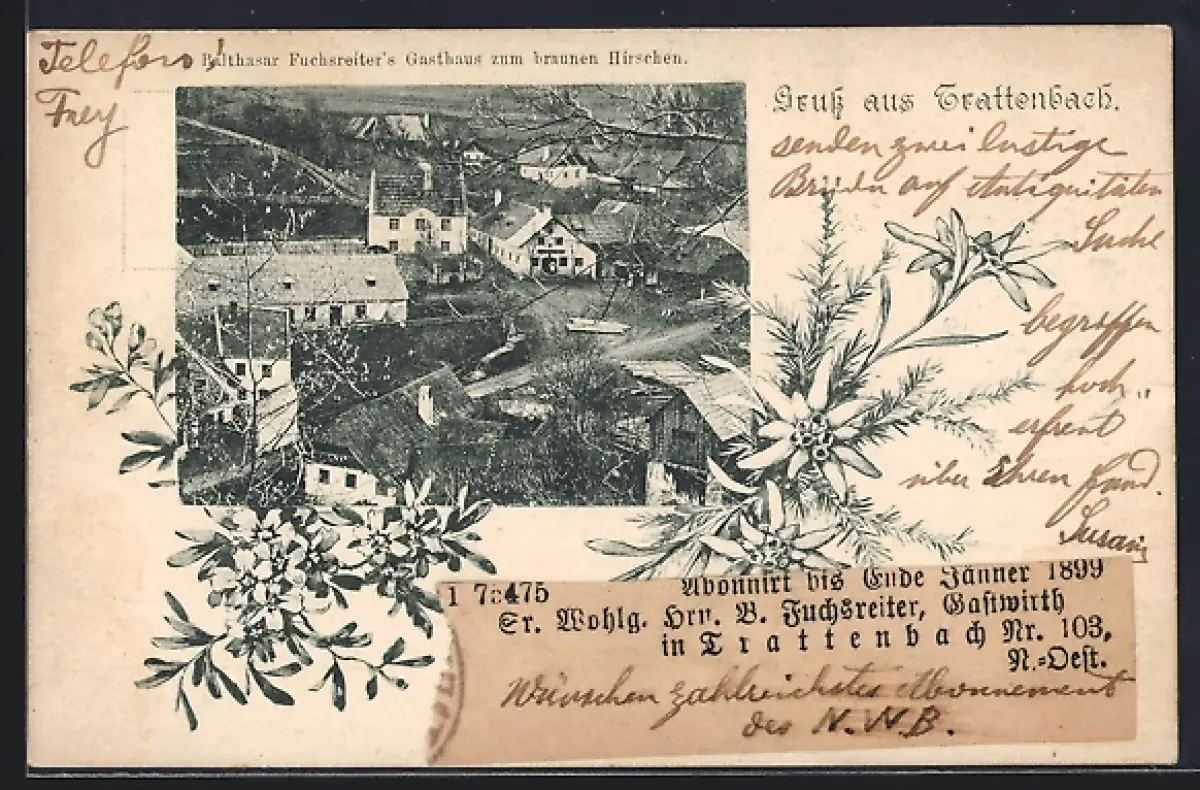 Telefon!
Frey
Balthasar Fuchsreiter's Gasthaus zum braunen Hirschen.
Gruß aus Trattenbach.
senden zwei lustige
Brüder auf Antiquitäten
Suche
begriffen
hoch
erfreut
über Ihren Fund.
1 73475
Abonnirt bis Ende Jänner 1899
Sr. Wohlg. Hrn. B. Fuchsreiter, Gastwirth
in Trattenbach Nr. 103,
N.=Oest.
Wünschen zahlreichstes Abonnement
des N.W.B.